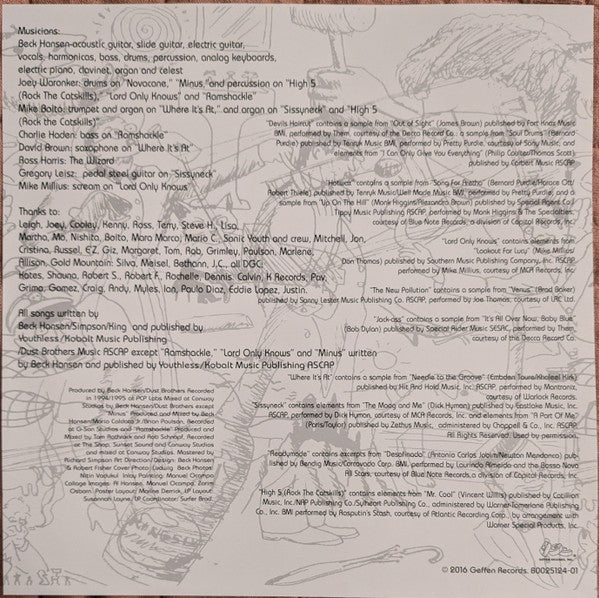 Musicians:
Beck Hansen-acoustic guitar, slide guitar, electric guitar,
vocals, harmonicas, bass, drums, percussion, analog keyboards,
electric piano, clavinet, organ and celest
Joey Waronker: drums on "Novacane," "Minus," and percussion on "High 5
(Rock The Catskills)," "Lord Only Knows" and "Ramshackle"
Mike Boito: trumpet and organ on "Where It's At," and organ on "Sissyneck" and "High 5
(Rock the Catskills)"
Charlie Haden: bass on "Ramshackle"
David Brown: saxophone on "Where It's At"
Ross Harris: The Wizard
Gregory Leisz: pedal steel guitar on "Sissyneck"
Mike Millius: scream on "Lord Only Knows"
Thanks to:
Leigh, Joey, Cooley, Kenny, Ross, Terry, Steve H., Lisa,
Martha, Mo, Nishito, Boito, Mara Marco, Mario C., Sonic Youth and crew, Mitchell, Jon,
Cristina, Russel, EZ, Giz, Margaret, Tom, Rob, Grimley, Paulson, Marlene,
Allison, Gold Mountain: Silva, Meisel, Bethann, J.C., all DGC,
Hates, Shauna, Robert S., Robert F., Rochelle, Dennis, Calvin, K Records, Pav,
Grimo, Gomez, Craig, Andy, Myles, Ian, Paulo Diaz, Eddie Lopez, Justin.
All songs written by
Beck Hansen/Simpson/King and published by
Youthless/Kobalt Music Publishing
/Dust Brothers Music ASCAP except "Ramshackle," "Lord Only Knows" and "Minus" written
by Beck Hansen and published by Youthless/Kobalt Music Publishing ASCAP
Produced by Beck Hansen/Dust Brothers Recorded
in 1994/1995 at PCP Labs Mixed at Conway
Studios by Beck Hansen/Dust Brothers except:
"Minus" Produced and Mixed by Beck
Hansen/Mario Caldato Jr./Brian Paulson, Recorded
at G-Son Studios and "Ramshackle" Produced and
Mixed by Tom Rothrock and Rob Schnapf, Recorded
at The Shop, Sunset Sound and Conway Studios
and mixed at Conway Studios. Mastered by
Richard Simpson Art Direction/Design: Beck Hansen
& Robert Fisher Cover Photo: Ludwig Beck Photos:
Nitin Vadukul Inlay Painting: Manuel Ocampo
Collage Images: Al Hansen, Manuel Ocampo, Zarim
Osborn, Poster Layout: Marlene Derrick, LP Layout:
Susannah Layne, LP Coordinator: Surfer Brad.
"Devils Haircut" contains a sample from "Out of Sight" (James Brown) published by Fort Knox Music
BMI, performed by Them, courtesy of the Decca Record Co., a sample from "Soul Drums" (Bernard
Purdie) published by Tenryk Music BMI, performed by Pretty Purdie, courtesy of Sony Music, and
elements from "I Can Only Give You Everything" (Phillip Coulter/Thomas Scott)
published by Carbert Music ASCAP
"Hotwax" contains a sample from "Song For Aretha" (Bernard Purdie/Horace Ott/
Robert Thiele) published by Tenryk Music/Well Made Music BMI, performed by Pretty Purdie, and a
sample from "Up On the Hill" (Monk Higgins/Alexandra Brown) published by Special Agent Co./
Tippy Music Publishing ASCAP, performed by Monk Higgins & The Specialties,
courtesy of Blue Note Records, a division of Capitol Records, Inc.
"Lord Only Knows" contains elements from
"Lookout For Lucy" (Mike Millius/
Don Thomas) published by Southern Music Publishing Company, Inc. ASCAP,
performed by Mike Millius, courtesy of MCA Records, Inc.
"The New Pollution" contains a sample from "Venus" (Brad Baker)
published by Sonny Lester Music Publishing Co. ASCAP, performed by Joe Thomas, courtesy of LRC Ltd.
"Jack-ass" contains a sample from "It's All Over Now, Baby Blue"
(Bob Dylan) published by Special Rider Music SESAC, performed by Them,
courtesy of the Decca Record Co.
"Where It's At" contains a sample from "Needle to the Groove" (Embden Toure/Khaleel Kirk)
published by Hit And Hold Music Inc. ASCAP, performed by Mantronix,
courtesy of Warlock Records.
"Sissyneck" contains elements from "The Moog and Me" (Dick Hyman) published by Eastlake Music, Inc.
ASCAP, performed by Dick Hyman, courtesy of MCA Records, Inc. and elements from "A Part Of Me"
(Paris/Taylor) published by Zethus Music, administered by Chappell & Co., Inc. ASCAP
All Rights Reserved. Used by permission.
"Readymade" contains excerpts from "Desafinado" (Antonio Carlos Jobim/Newton Mendonca) pub-
lished by Bendig Music/Corcovado Corp. BMI, performed by Laurindo Almeida and the Bossa Nova
All Stars, courtesy of Blue Note Records, a division of Capitol Records, Inc.
"High 5 (Rock The Catskills)" contains elements from "Mr. Cool" (Vincent Willis) published by Cotillion
Music, Inc./NAP Publishing Co/Syheart Publishing Co., administered by Warner-Tamerlane Publishing
Co., Inc. BMI performed by Rasputin's Stash, courtesy of Atlantic Recording Corp., by arrangement with
Warner Special Products, Inc.
© 2016 Geffen Records. B0025124-01